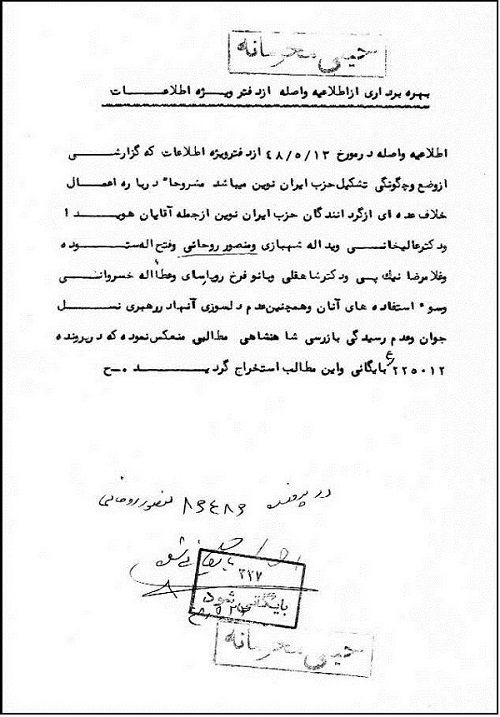 خیلی محرمانه
بهره برداری ازاطلاعیه واصله ازدفتر ویژه اطلاعات
اطلاعیه واصله درمورخ ۴۸/۵/۱۳ ازدفترویژه اطلاعات که گزارشی
ازوضع وچگونگی تشکیل حزب ایران نوین میباشد مشروحا" درباره اعمال
خلاف عده ای ازگردانندگان حزب ایران نوین ازجمله آقایان هویدا
ودکترعالیخانی ویداله شهبازی ومنصور روحانی وفتح اله ستوده
وغلامرضا نیک پی ودکترشاهقلی وبانو فرخ روپارسای وعطااله خسروانی
وسوء استفاده های آنان وهمچنین عدم دلسوزی آنهادررهبری نسل
جوان وعدم رسیدگی بازرسی شاهنشاهی مطالبی منعکس نموده که درپرونده
۲۲۵۰۱۲ ع بایگانی واین مطالب استخراج گردید ۰-ح
در پرونده ۸۶۴۸۶ منصور روحانی
بایگانی شود
۳۲۷
بایگانی شود
خیلی محرمانه